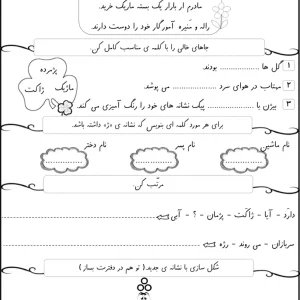 مادرم از بازار یک بسته ماژیک خرید.
ژاله و مُنیره آموزگار خود را دوست دارند.
جاهای خالی را با کلمه ی مناسب کامل کن.
پژمرده
ماژیک
ژاکت
۱ گل ها .................. بودند.
۲ مهتاب در هوای سرد .................. می پوشد.
۳ بیژن با .................. پیک نشانه های خود را رنگ آمیزی می کند.
برای هر مورد کلمه ای بنویس که نشانه ی «ژ» داشته باشد.
نام ماشین نام پسر نام دختر
............ ............ ............
مرتّب کن.
دارَد - آیا - ژاکَت - پژمان - ؟ - آبی
سربازان - می روند - رژه
شکل سازی با نشانه ی جدید.( تو هم در دفترت بساز )